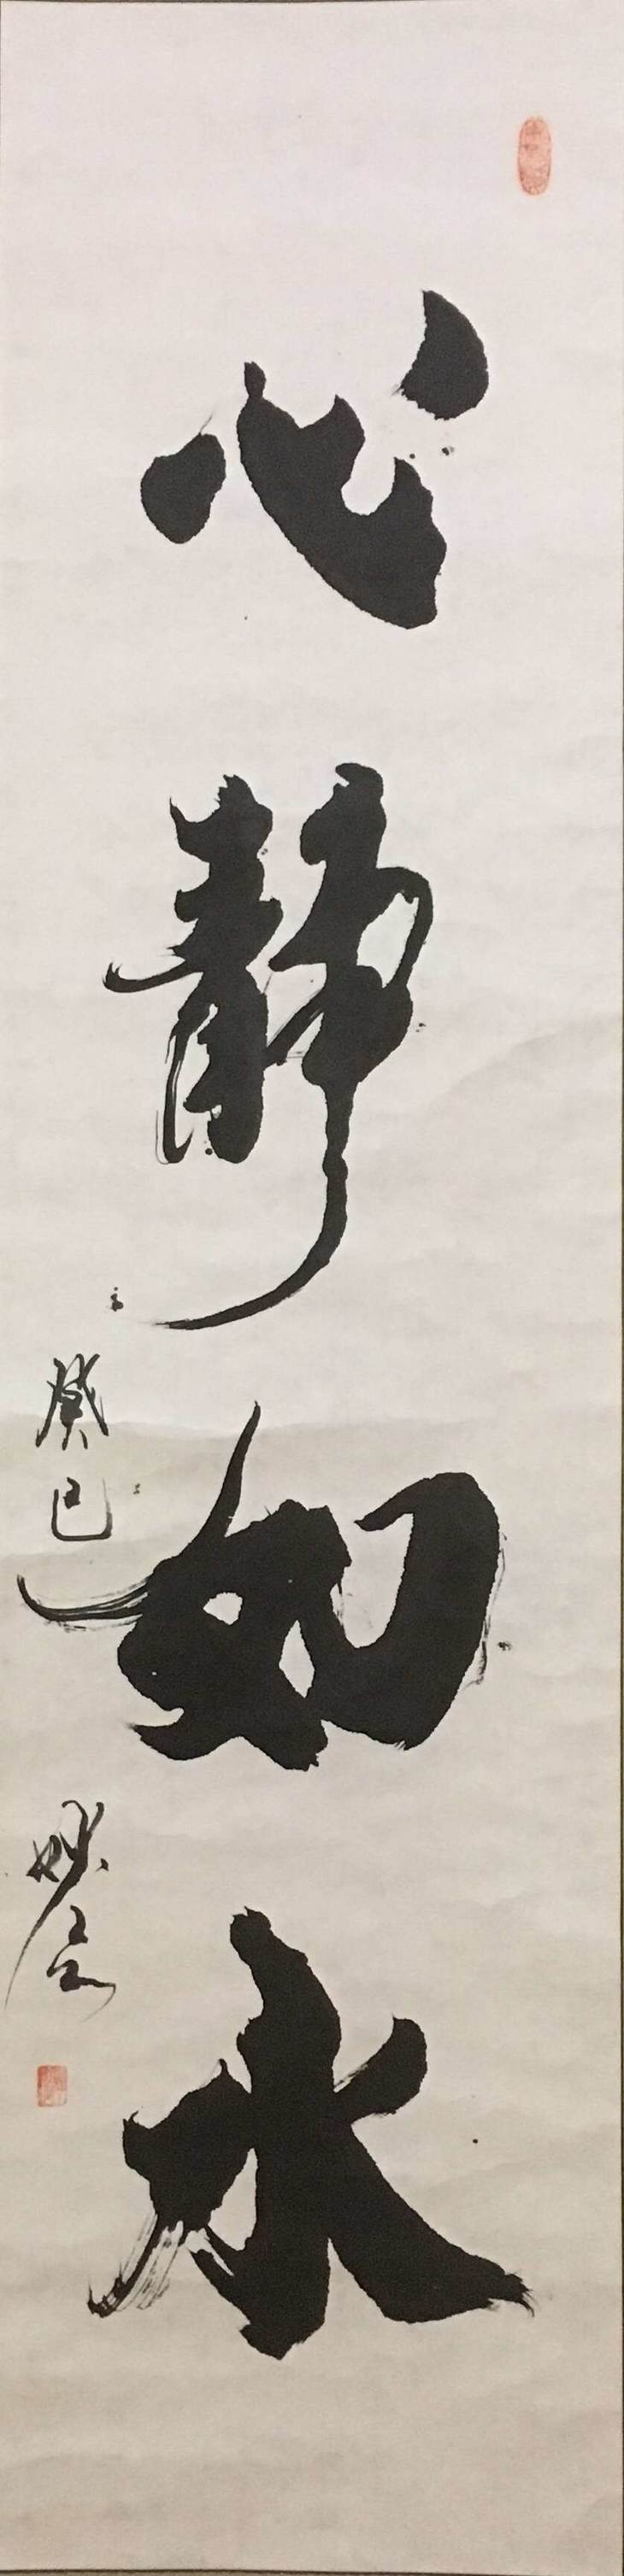 心静如水
癸巳
妙